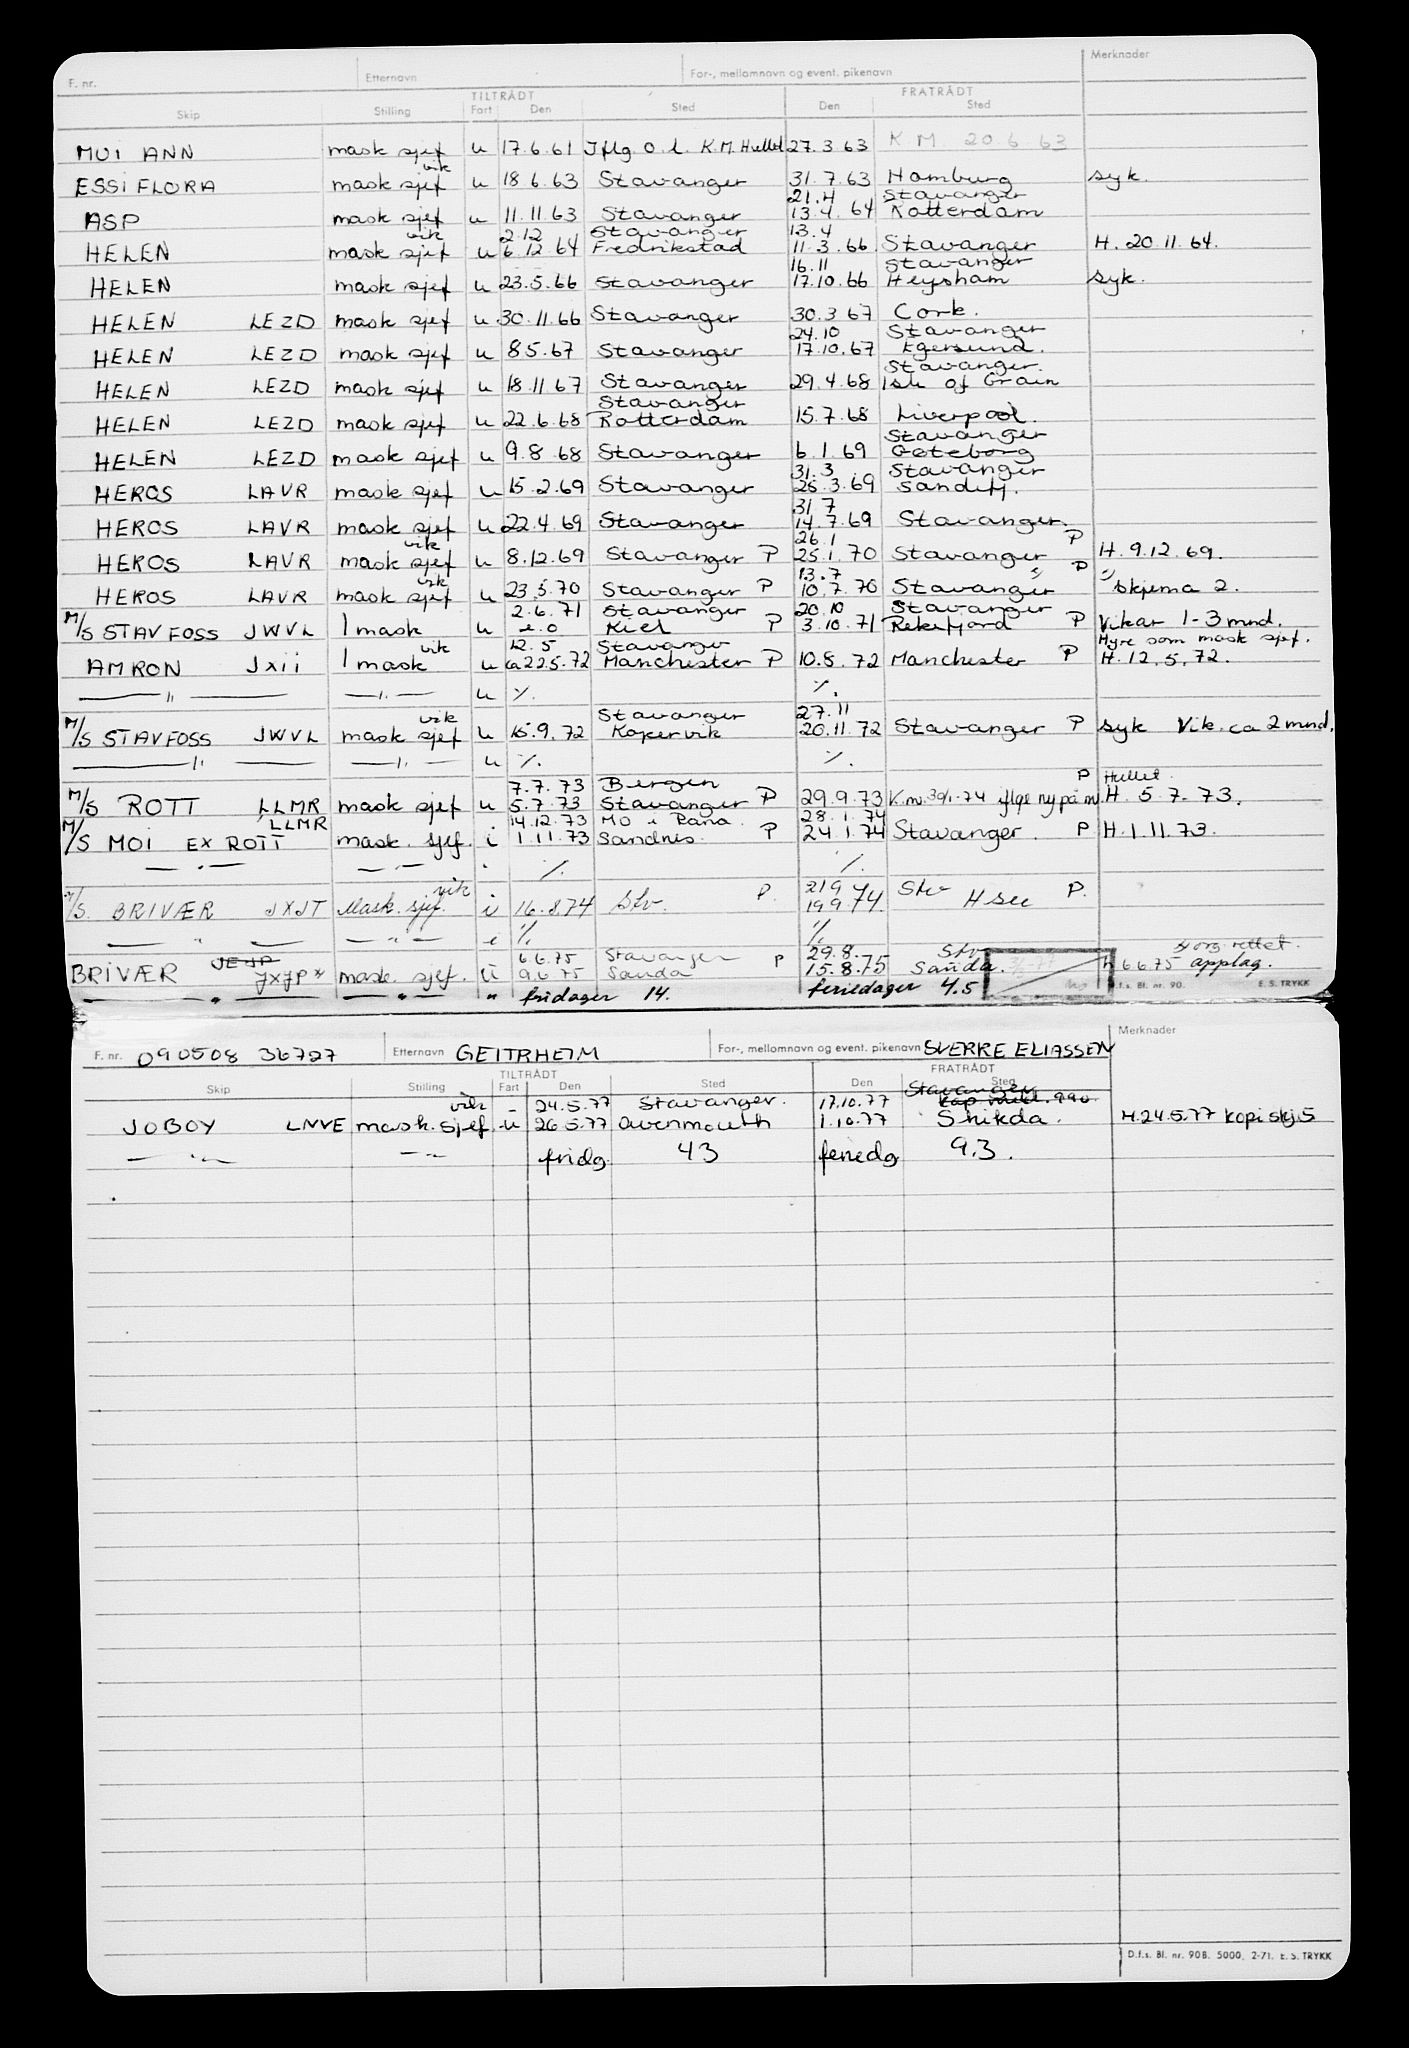 F. nr. Etternavn For-, mellomnavn og event. pikenavn Merknader
TILTRÅDT FRATRÅDT
Skip Stilling Fart Den Sted Den Sted
MUI ANN mask sjef u 17.6.61 Iflg. O.L. K.M. Hullet 27.3.63 K M 20 6 63
vik
ESSI FLORA mask sjef u 18.6.63 Stavanger 31.7.63 Hamburg syk.
21.4 Stavanger
ASP mask sjef u 11.11.63 Stavanger 13.4.64 Rotterdam
vik 2.12 Stavanger 13.4
HELEN mask sjef u 6.12.64 Fredrikstad 11.3.66 Stavanger H. 20.11.64.
16.11 Stavanger
HELEN mask sjef u 23.5.66 Stavanger 17.10.66 Heysham syk.
HELEN LEZD mask sjef u 30.11.66 Stavanger 30.3.67 Cork.
24.10 Stavanger
HELEN LEZD mask sjef u 8.5.67 Stavanger 17.10.67 Egersund.
Stavanger.
HELEN LEZD mask sjef u 18.11.67 Stavanger 29.4.68 Isle of Grain
Stavanger
HELEN LEZD mask sjef u 22.6.68 Rotterdam 15.7.68 Liverpool.
Stavanger
HELEN LEZD mask sjef u 9.8.68 Stavanger 6.1.69 Göteborg
31.3 Stavanger
HEROS LAVR mask sjef u 15.2.69 Stavanger 25.3.69 Sandefj.
31 7
HEROS LAVR mask sjef u 22.4.69 Stavanger 14.7.69 Stavanger.
vik 26.1 P
HEROS LAVR mask sjef u 8.12.69 Stavanger P 25.1.70 Stavanger H. 9.12.69.
vik 13.7 " P "
HEROS LAVR mask sjef u 23.5.70 Stavanger P 10.7.70 Stavanger Skjema 2.
2.6.71 Stavanger 20.10 Stavanger
M/S STAVFOSS JWVL 1 mask u e.o Kiel P 3.10.71 Rekefjord P Vikar 1-3 mnd.
vik 12.5 Stavanger Hyre som mask sjef.
AMRON JXII 1 mask u ca 22.5.72 Manchester P 10.8.72 Manchester P H. 12.5.72.
— " — — " — u %. %.
vik Stavanger 27.11
M/S STAVFOSS JWVL mask sjef u 15.9.72 Kopervik 20.11.72 Stavanger P syk Vik. ca 2 mnd.
— " — — " — u %. %.
7.7.73 Bergen P Hullet.
M/S ROTT LLMR mask sjef u 5.7.73 Stavanger P 29.9.73 K.m. 30/1-74 iflge ny på m. H. 5.7.73.
LLMR 14.12.73 Mo i Rana 28.1.74
M/S MOI EX ROTT mask. sjef. i 1.11.73 Sandnes. P 24.1.74 Stavanger. P H. 1.11.73.
— " — — " — . %. %.
vik 21 9
M/S. BRIVÆR JXJT Mask. sjef. i 16.8.74 Stv. P. 19 9 74. Stv H see P.
— " — — " — i %. %.
JEJP 6.6.75 Stavanger 29.8. Stv * org. rettet.
BRIVÆR JXJP* mask. sjef. u 9.6.75 Sauda P 15.8.75 Sauda. h 6.6.75 applag.
— " — — " — " fridager 14. feriedager 4.5 D.f.s. Bl. nr. 90. E. S. TRYKK
Merknader
F. nr. 090508 36727 Etternavn GEITRHEIM For-, mellomnavn og event. pikenavn SVERRE ELIASSEN
TILTRÅDT FRATRÅDT
Skip Stilling Fart Den Sted Den Sted
Stavanger
vik - 24.5.77 Stavanger. 17.10.77
JOBOY LNVE mask. sjef. u 26.5.77 Avonmouth 1.10.77 Skikda. H. 24.5.77 kopi skj. 5
— " — — " — fridg 43 feriedg 9.3.
D.f.s. Bl. nr. 90B. 5000, 2-71. E. S. TRYKK